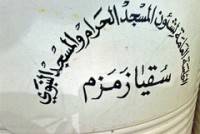 الرئاسة العامة لشئون المسجد الحرام والمسجد النبوي
سقيا زمزم